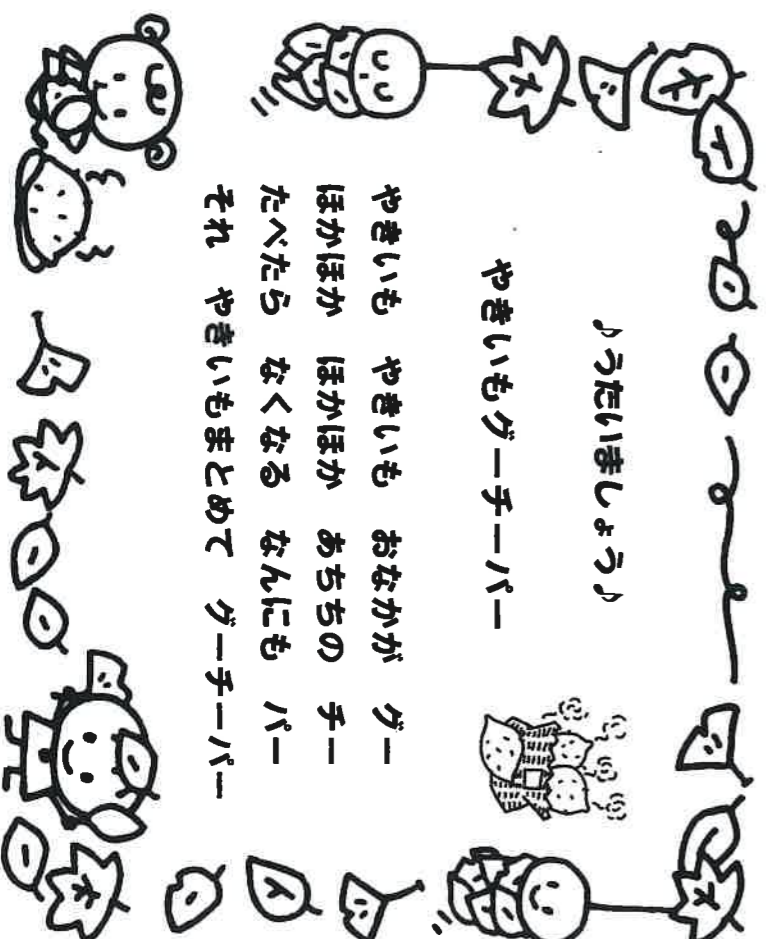 ♪うたいましょう♪
やきいもグーチーパー
やきいも やきいも おなかが グー
ほかほか ほかほか あちちの チー
たべたら なくなる なんにも パー
それ やきいもまとめて グーチーパー